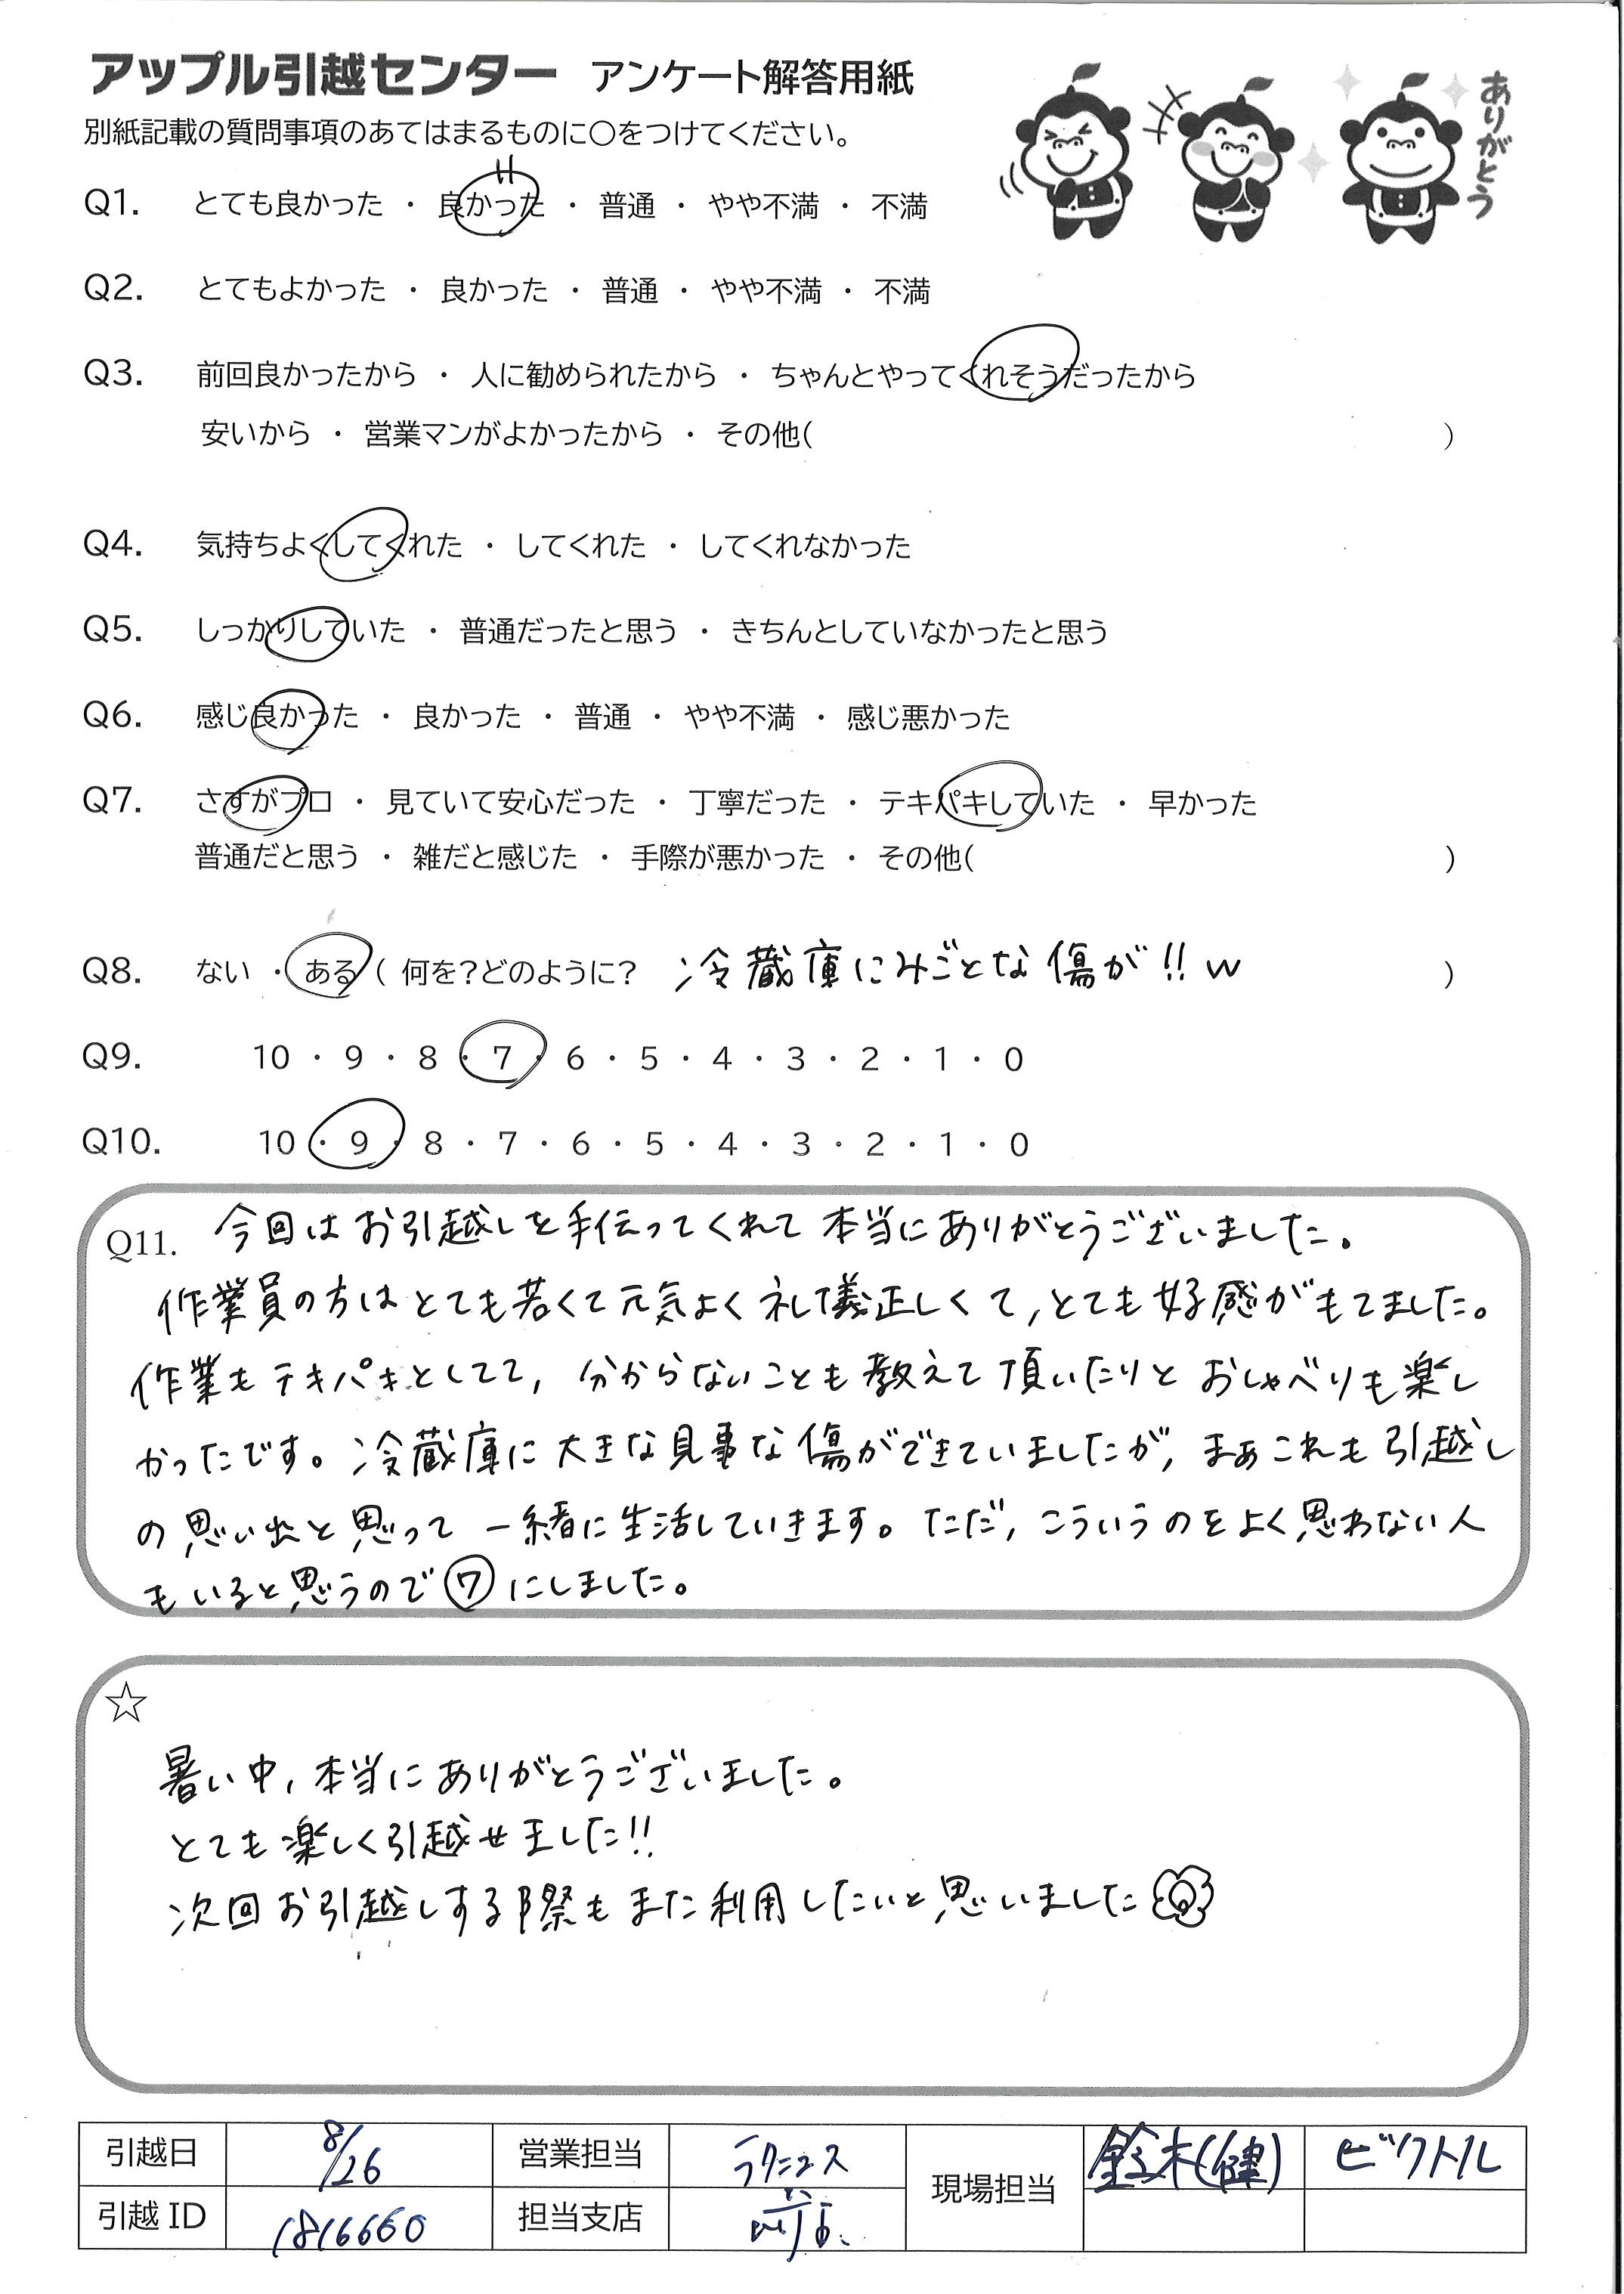 アップル引越センター アンケート解答用紙
ありがとう
別紙記載の質問事項のあてはまるものに○をつけてください。
Q1. とても良かった ・ 良かった ・ 普通 ・ やや不満 ・ 不満
Q2. とてもよかった ・ 良かった ・ 普通 ・ やや不満 ・ 不満
Q3. 前回良かったから ・ 人に勧められたから ・ ちゃんとやってくれそうだったから
安いから ・ 営業マンがよかったから ・ その他( )
Q4. 気持ちよくしてくれた ・ してくれた ・ してくれなかった
Q5. しっかりしていた ・ 普通だったと思う ・ きちんとしていなかったと思う
Q6. 感じ良かった ・ 良かった ・ 普通 ・ やや不満 ・ 感じ悪かった
Q7. さすがプロ ・ 見ていて安心だった ・ 丁寧だった ・ テキパキしていた ・ 早かった
普通だと思う ・ 雑だと感じた ・ 手際が悪かった ・ その他( )
Q8. ない ・ ある ( 何を?どのように? 冷蔵庫にみごとな傷が!! w )
Q9. 10 ・ 9 ・ 8 ・ 7 ・ 6 ・ 5 ・ 4 ・ 3 ・ 2 ・ 1 ・ 0
Q10. 10 ・ 9 ・ 8 ・ 7 ・ 6 ・ 5 ・ 4 ・ 3 ・ 2 ・ 1 ・ 0
Q11. 今回はお引越しを手伝ってくれて本当にありがとうございました。
作業員の方はとても若くて元気よく礼儀正しくて,とても好感がもてました。
作業もテキパキとしてて, 分からないことも教えて頂いたりとおしゃべりも楽し
かったです。冷蔵庫に大きな見事な傷ができていましたが, まぁこれも引越し
の思い出と思って一緒に生活していきます。ただ, こういうのをよく思わない人
もいると思うので⑦にしました。
☆
暑い中, 本当にありがとうございました。
とても楽しく引越せました!!
次回お引越しする際もまた利用したいと思いました
引越日 8/26 営業担当 ラクニコス 現場担当 鈴木(健) ビクトル
引越ID 1816660 担当支店